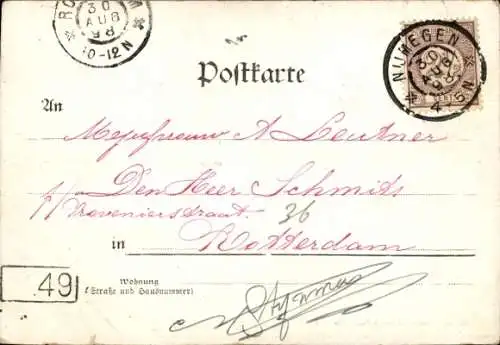 30
AUG
98
10-12N
NIJMEGEN
30
AUG
98
4-5N
Postkarte
An
Mejufvrouw A Leutner
Den Heer Schmits
p/a Provenierstraat 36
in Rotterdam
49
Wohnung
(Straße und Hausnummer)